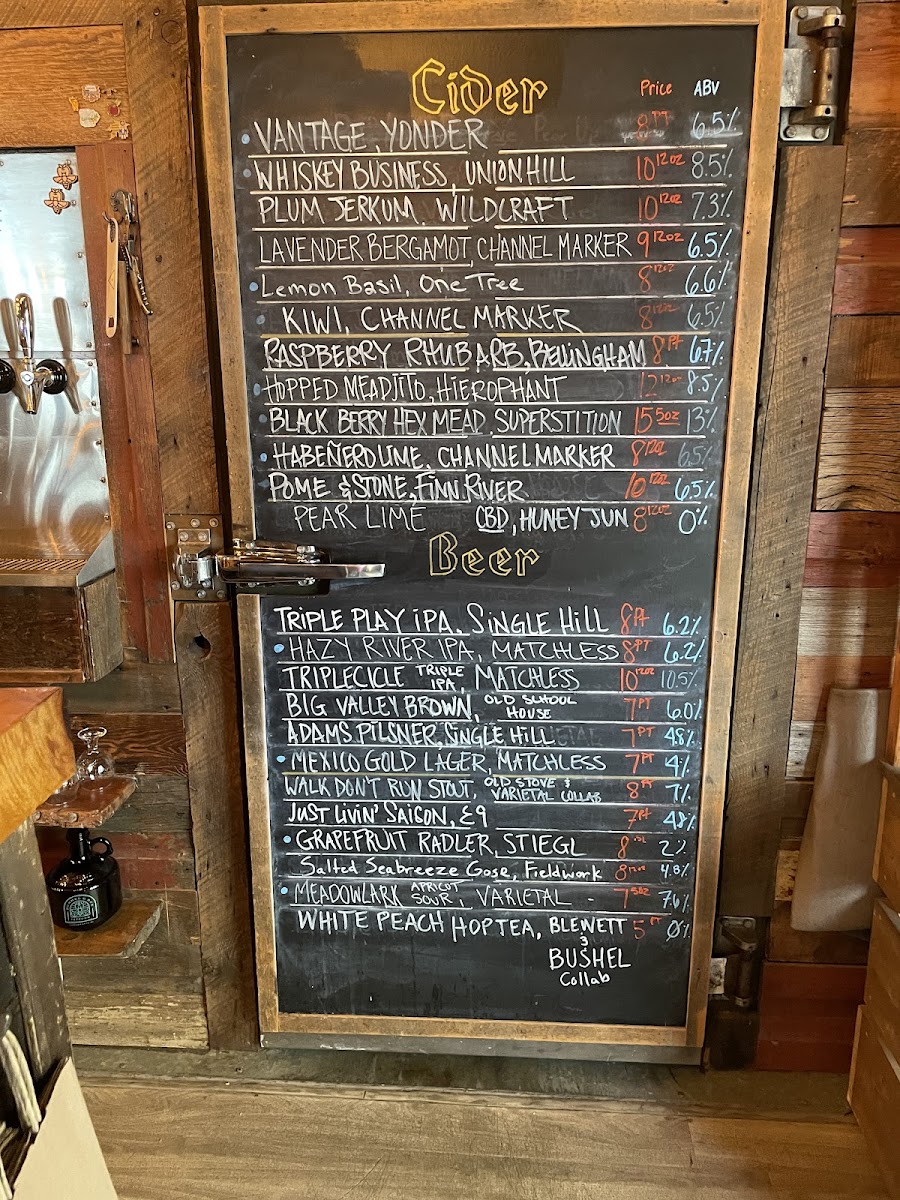 Cider Price ABV
VANTAGE, YONDER 8 PT 6.5%
WHISKEY BUSINESS, UNION HILL 10 12oz 8.5%
PLUM JERKUM, WILDCRAFT 10 12oz 7.3%
LAVENDER BERGAMOT, CHANNEL MARKER 9 12oz 6.5%
Lemon Basil, One Tree 8 12oz 6.6%
KIWI, CHANNEL MARKER 8 12oz 6.5%
RASPBERRY RHUBARB, BELLINGHAM 8 Pt 6.7%
HOPPED MEADJITO, HIEROPHANT 12 12oz 8.5%
BLACK BERRY HEX MEAD, SUPERSTITION 15 5oz 13%
HABEÑERO LIME, CHANNEL MARKER 8 12oz 6.5%
POME & STONE, FINN RIVER 10 12oz 6.5%
PEAR LIME CBD, HUNEY JUN 8 12oz 0%
Beer
TRIPLE PLAY IPA, SINGLE HILL 8 Pt 6.2%
HAZY RIVER IPA, MATCHLESS 8 PT 6.2%
TRIPLECICLE TRIPLE IPA, MATCHLESS 10 12oz 10.5%
BIG VALLEY BROWN, OLD SCHOOL HOUSE 7 PT 6.0%
ADAMS PILSNER, SINGLE HILL 7 PT 4.8%
MEXICO GOLD LAGER, MATCHLESS 7 PT 4%
WALK DON'T RUN STOUT, OLD STOVE & VARIETAL COLLAB 8 Pt 7%
JUST LIVIN' SAISON, E9 7 Pt 4.8%
GRAPEFRUIT RADLER, STIEGL 8 2%
Salted Seabreeze Gose, Fieldwork 8 12oz 4.8%
MEADOWLARK APRICOT SOUR, VARIETAL - 7 5oz 7.6%
WHITE PEACH HOP TEA, BLEWETT 5 PT 0%
&
BUSHEL
Collab